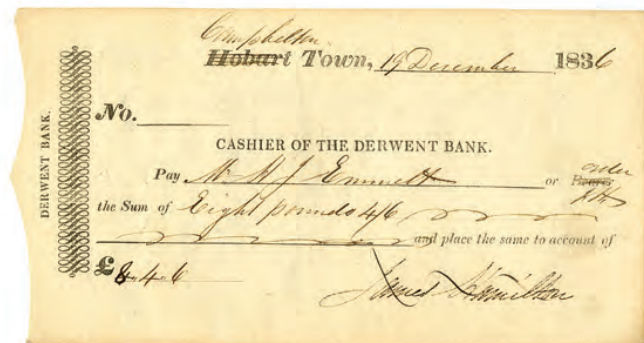 Campbelton
Hobart Town, 19 December 1836
DERWENT BANK.
No.
CASHIER OF THE DERWENT BANK.
Pay Mr H J Emmett or Bearer order
the Sum of Eight pounds 4/6
and place the same to account of
£ 8.4.6
James Hamilton